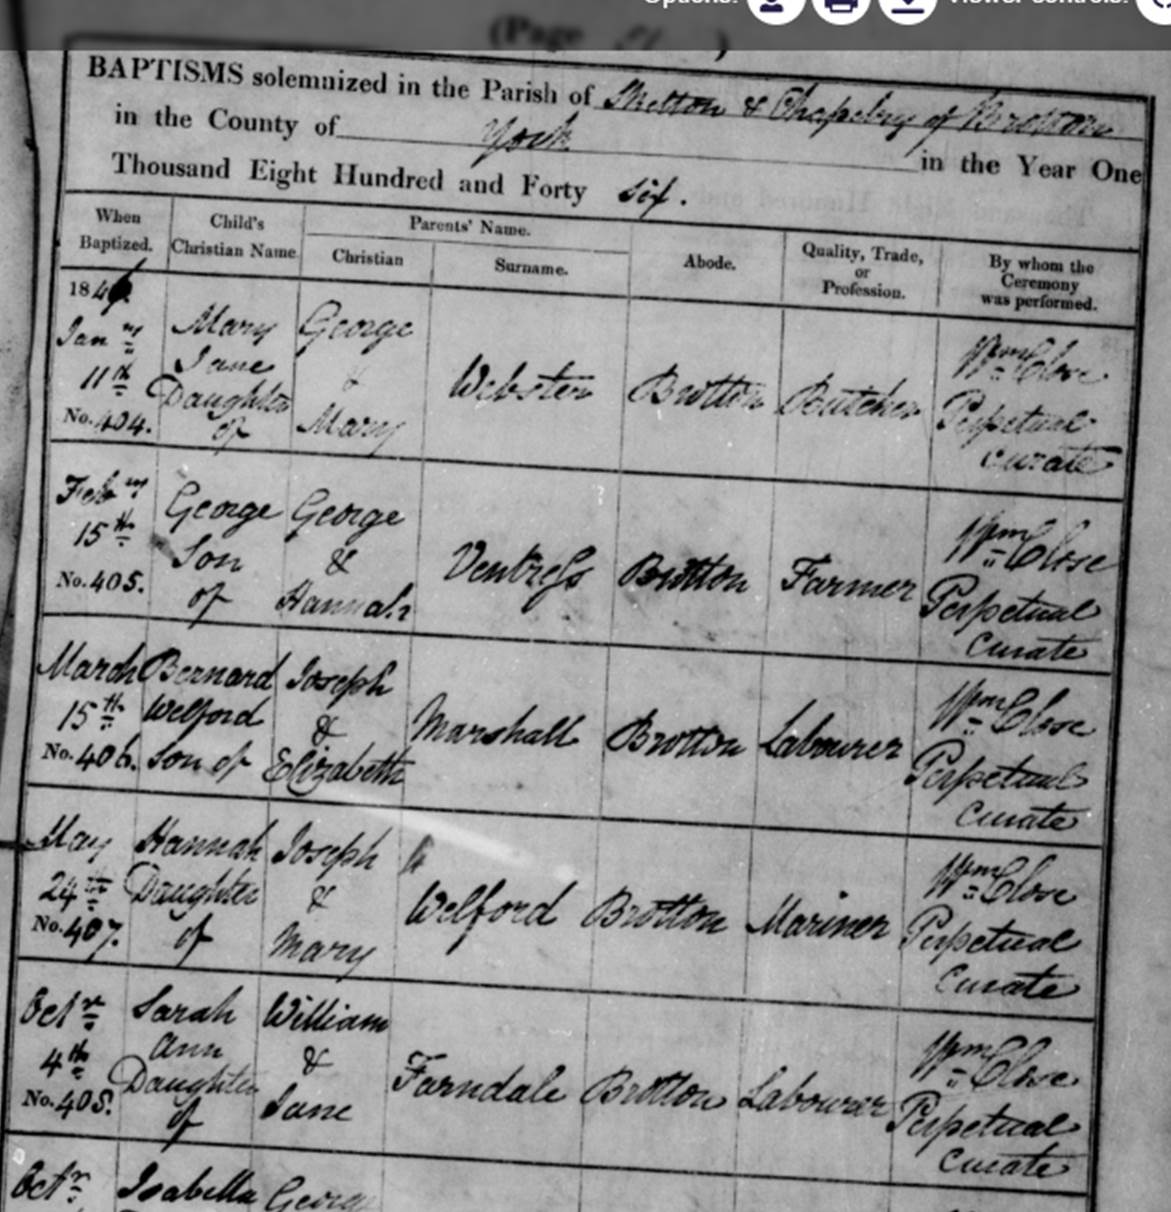 Options:
Viewer controls:
(Page
BAPTISMS solemnized in the Parish of Skelton & Chapelry of Brotton
in the County of York in the Year One
Thousand Eight Hundred and Forty six.
When Baptized. Child's Christian Name. Parents' Name. Christian Surname. Abode. Quality, Trade, or Profession. By whom the Ceremony was performed.
1846.
Jany Mary George Wm Close
11th Jane & Webster Brotton Butcher Perpetual
No. 404. Daughter of Mary curate
Feby George George Wm Close
15th Son & Ventress Brotton Farmer Perpetual
No. 405. of Hannah Curate
March Bernard Joseph Wm Close
15th Welford & Marshall Brotton Labourer Perpetual
No. 406. Son of Elizabeth Curate
May Hannah Joseph Wm Close
24th Daughter & Welford Brotton Mariner Perpetual
No. 407. of Mary Curate
Octr Sarah William Wm Close
4th Ann & Farndale Brotton Labourer Perpetual
No. 408. Daughter of Jane Curate
Octr Isabella George